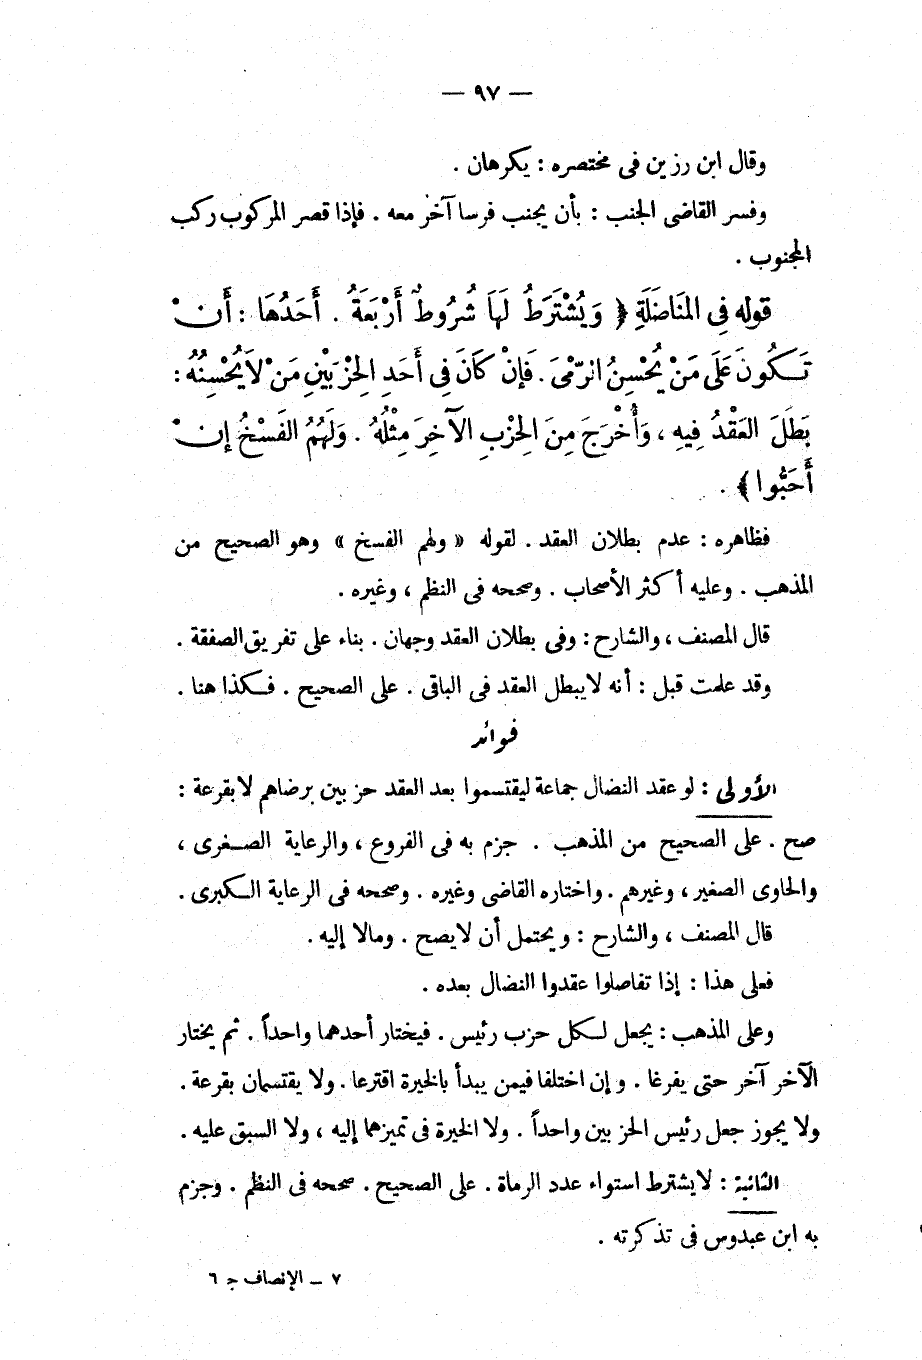 — ٩٧ —
وقال ابن رزين فى مختصره : يكرهان .
وفسر القاضى الجنب : بأن يجنب فرسا آخر معه . فإذا قصر المركوب ركب
المجنوب .
قوله فِى المُنَاضَلَةِ ﴿ وَيُشْتَرَطُ لَهَا شُرُوطٌ أَرْبَعَةٌ . أَحَدُهَا : أَنْ
تَكُونَ عَلَى مَنْ يُحْسِنُ الرَّمْىَ . فَإِنْ كَانَ فِى أَحَدِ الحِزْبَيْنِ مَنْ لاَ يُحْسِنُهُ :
بَطَلَ العَقْدُ فِيهِ ، وَأُخْرِجَ مِنَ الحِزْبِ الآخَرِ مِثْلُهُ . وَلَهُمُ الفَسْخُ إِنْ
أَحَبُّوا ﴾ .
فظاهره : عدم بطلان العقد . لقوله « ولهم الفسخ » وهو الصحيح من
المذهب . وعليه أكثر الأصحاب . وصححه فى النظم ، وغيره .
قال المصنف ، والشارح : وفى بطلان العقد وجهان . بناء على تفريق الصفقة .
وقد علمت قبل : أنه لا يبطل العقد فى الباقى . على الصحيح . فكذا هنا .
فوائد
الأولى : لو عقد النضال جماعة ليقتسموا بعد العقد حزبين برضاهم لا بقرعة :
صح . على الصحيح من المذهب . جزم به فى الفروع ، والرعاية الصغرى ،
والحاوى الصغير ، وغيرهم . واختاره القاضى وغيره . وصححه فى الرعاية الكبرى .
قال المصنف ، والشارح : ويحتمل أن لا يصح . ومالا إليه .
فعلى هذا : إذا تفاصلوا عقدوا النضال بعده .
وعلى المذهب : يجعل لكل حزب رئيس . فيختار أحدهما واحداً . ثم يختار
الآخر آخر حتى يفرغا . وإن اختلفا فيمن يبدأ بالخيرة اقترعا . ولا يقتسمان بقرعة .
ولا يجوز جعل رئيس الحزبين واحداً . ولا الخيرة فى تميزهما إليه ، ولا السبق عليه .
الثانية : لا يشترط استواء عدد الرماة . على الصحيح . صححه فى النظم . وجزم
به ابن عبدوس فى تذكرته .
٧ – الإنصاف ج ٦